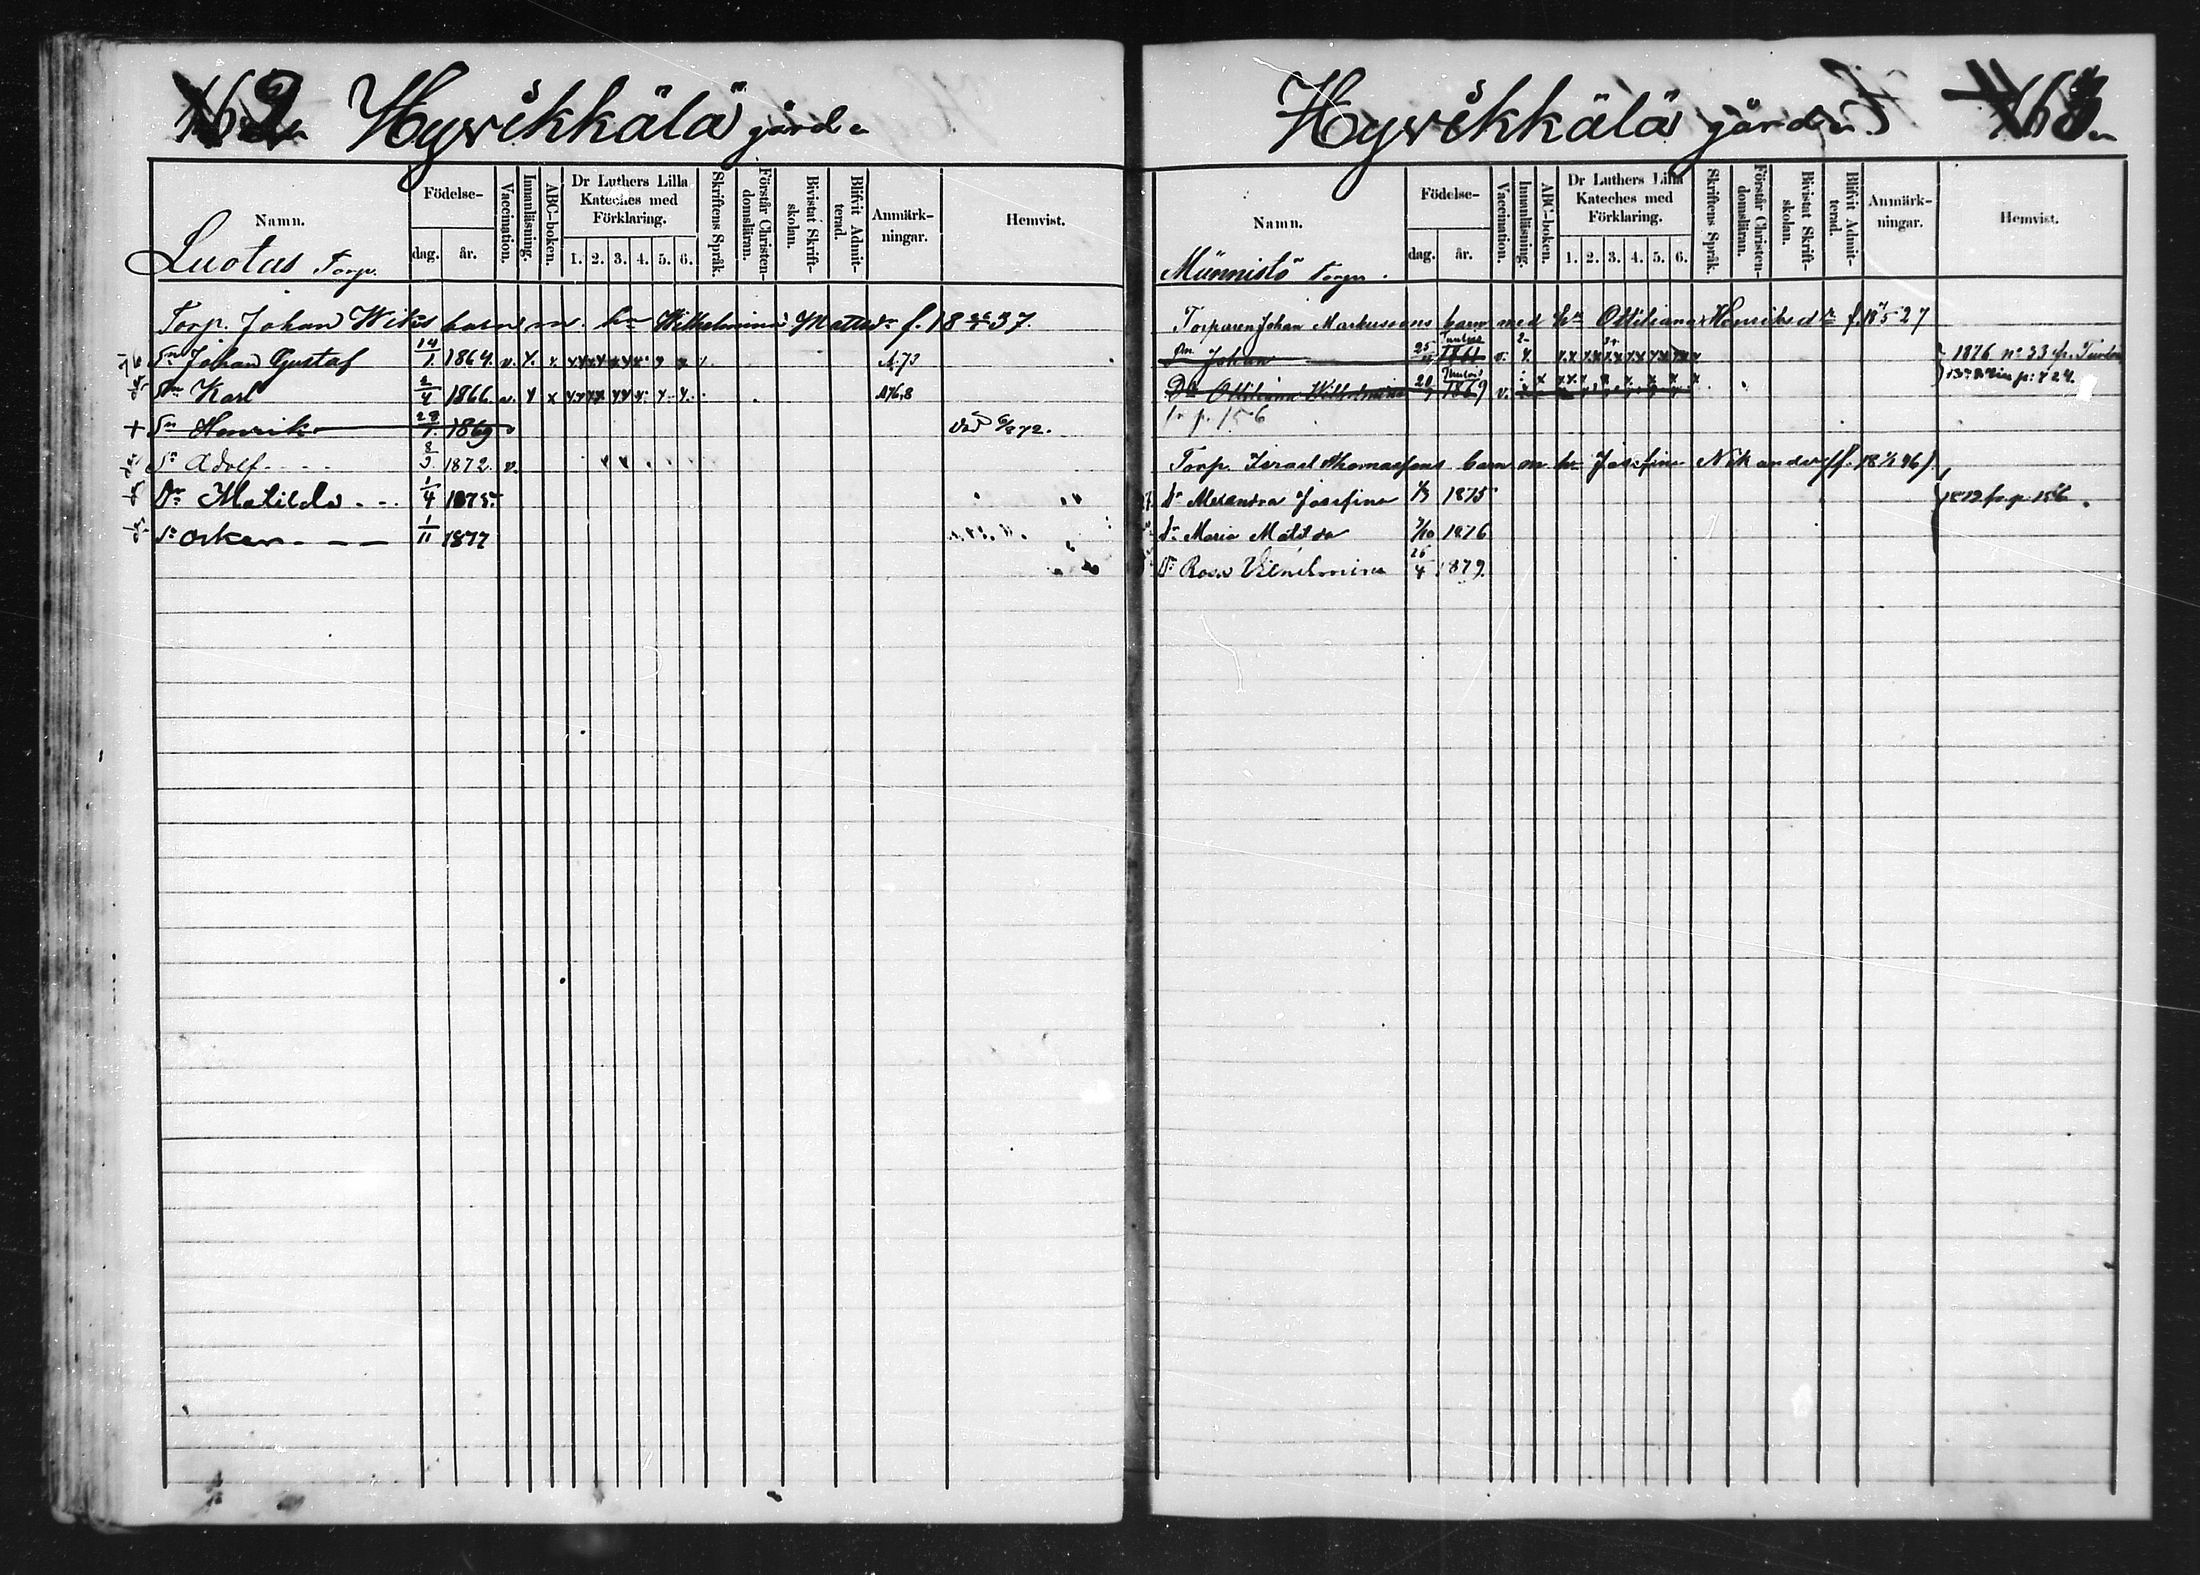 Hyvikkälä gård
Namn.
Födelse-
dag.
år.
Vaccination.
Innanläsning.
ABC-boken.
Dr Luthers Lilla Kateches med Förklaring.
1. 2. 3. 4. 5. 6.
Skriftens Språk.
Förstår Christendomsläran.
Bivistat Skriftskolan.
Blifvit Admitterad.
Anmärkningar.
Hemvist.
Luotas Torp.
Torp. Johan barn m. hu Wilhelmina Mattsdr f. 18 37.
Sn Johan Gustaf 14/1 1864. v. A. 73
Sn Karl 2/4 1866. v.
Sn Henrik 1869 död 72.
Sn Adolf 8/3 1872. v.
Dr Matilda 1/4 1875.
Sn Oskar 1/11 1877
Hyvikkälä gård
Namn.
Födelse-
dag.
år.
Vaccination.
Innanläsning.
ABC-boken.
Dr Luthers Lilla Kateches med Förklaring.
1. 2. 3. 4. 5. 6.
Skriftens Språk.
Förstår Christendomsläran.
Bivistat Skriftskolan.
Blifvit Admitterad.
Anmärkningar.
Hemvist.
Männistö Torp.
Torparen Johan Markussons barn med hu Ottiliana Henriksdr f. 27
Sn Johan 25 1861 v. 1876 no 33 fr.
Dr Ottiliana Wilhelmina 20 1869 v.
fr p. 156
Torp. Israel Thomassons barn m hu Josefina Nikander
Dr Alexandra Josefina 1875 fr p. 156
Dr Maria Matilda 1876
Dr Rosa Vilhelmina 26/4 1879.